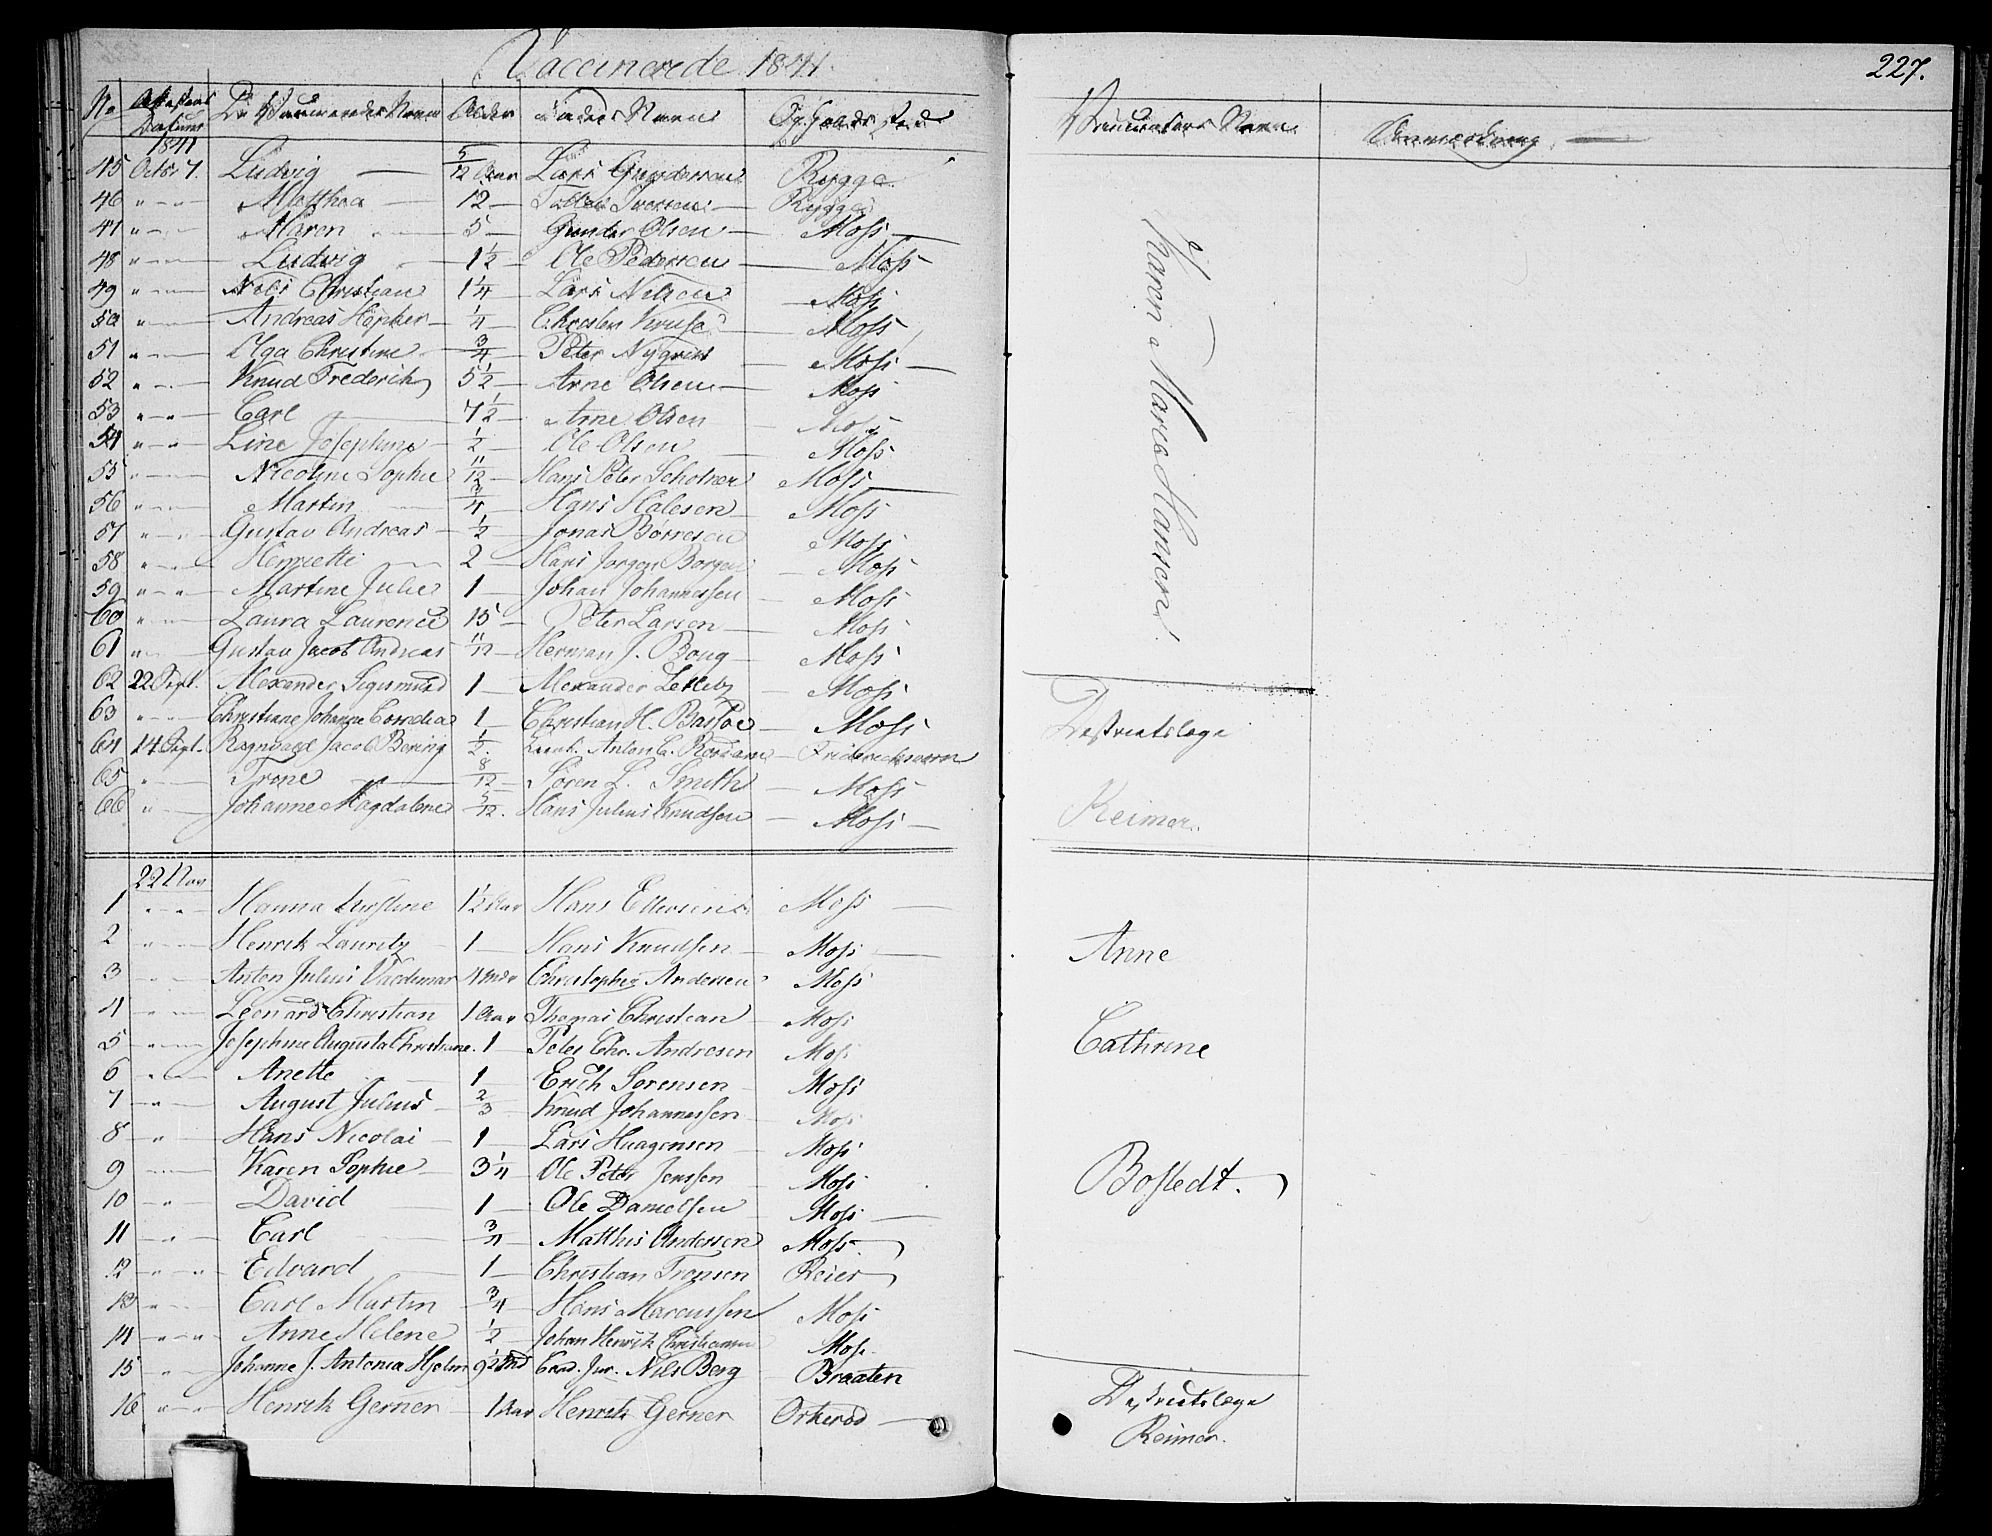 Vaccinerede 1841.
227.
No Attestens Datum De Vaccineredes Navn Alder Faders Navn Opholds Sted Vaccinateurs Navn Anmærkning
1841
45 Octb. 7. Ludvig 5/12 Aar Lars Gundersen Rygge
46 " Matthea 12 Iversen Rygge
47 " Maren 5 Gunder Olsen Moss
48 " Ludvig 1 1/2 Ole Pedersen Moss
49 " Nils Christian 1 1/4 Lars Nilsen Moss
50 " Andreas Høpker 1/4 Christen Kruse Moss
51 " Olga Christine 3/4 Peter Nygren Moss
52 " Knud Frederik 5 1/2 Arne Olsen Moss
53 " Carl 7 1/2 Arne Olsen Moss
54 " Line Josephine 1/2 Ole Olsen Moss
55 " Nicoline Sophie 11/12 Hans Peter Scholner Moss
56 " Martin 3/4 Hans Halesen Moss
57 " Gustav Andreas 1/2 Jonas Børresen Moss
58 " Henriette 2 Hans Jørgen Borgen Moss
59 " Martine Julie 1 Johan Johannessen Moss
60 " Laura Laurence 15 Peter Larsen Moss
61 " Gustav Jacob Andreas 11/12 Herman J. Boug Moss
Karen Marie Hansen
62 22 Sept. Alexander Sigismund 1 Alexander Zetliz Moss
63 " Christiane Johanne Cornelia 1 Christian H. Basøe Moss
64 14 Sept. Ragnvald Jacob Bering 1/2 Lieut. Anton C. Rordam Friderichsværn
65 " Trone 8/12 Søren L. Smith Moss
66 " Johanne Magdalene 5/12 Hans Julius Knudsen Moss
Destrictslæge
Reimer.
22 Nov
1 " Hanna Kirstine 1 1/2 Aar Hans Ellersen Moss
2 " Henrik Lauritz 1 Hans Knudsen Moss
3 " Anton Julius Valdemar 4 Mdr Christopher Andersen Moss
4 " Leonard Christian 1 Aar Thomas Christian Moss
5 " Josephine Augusta Christiane 1 Peter Chr. Andresen Moss
6 " Anette 1 Erich Sorensen Moss
7 " August Julius 2/3 Knud Johannessen Moss
8 " Hans Nicolai 1 Lars Haagensen Moss
9 " Karen Sophie 3 1/4 Ole Peter Jenssen Moss
10 " David 1 Ole Danielsen Moss
11 " Carl 3/4 Matthis Andersen Moss
12 " Edvard 1 Christian Tronsen Reier
13 " Carl Martin 3/4 Hans Marcussen Moss
14 " Anne Helene 1/2 Johan Henrik Christiansen Moss
Anne
Cathrine
Bostedt.
15 " Johanne J. Antonia Hjelm 9 1/2 Md Cand. Jur. Nils Berg Braaten
16 " Henrik Gerner 1 Aar Henrik Gerner Orkerød
Destrictslæge
Reimer.